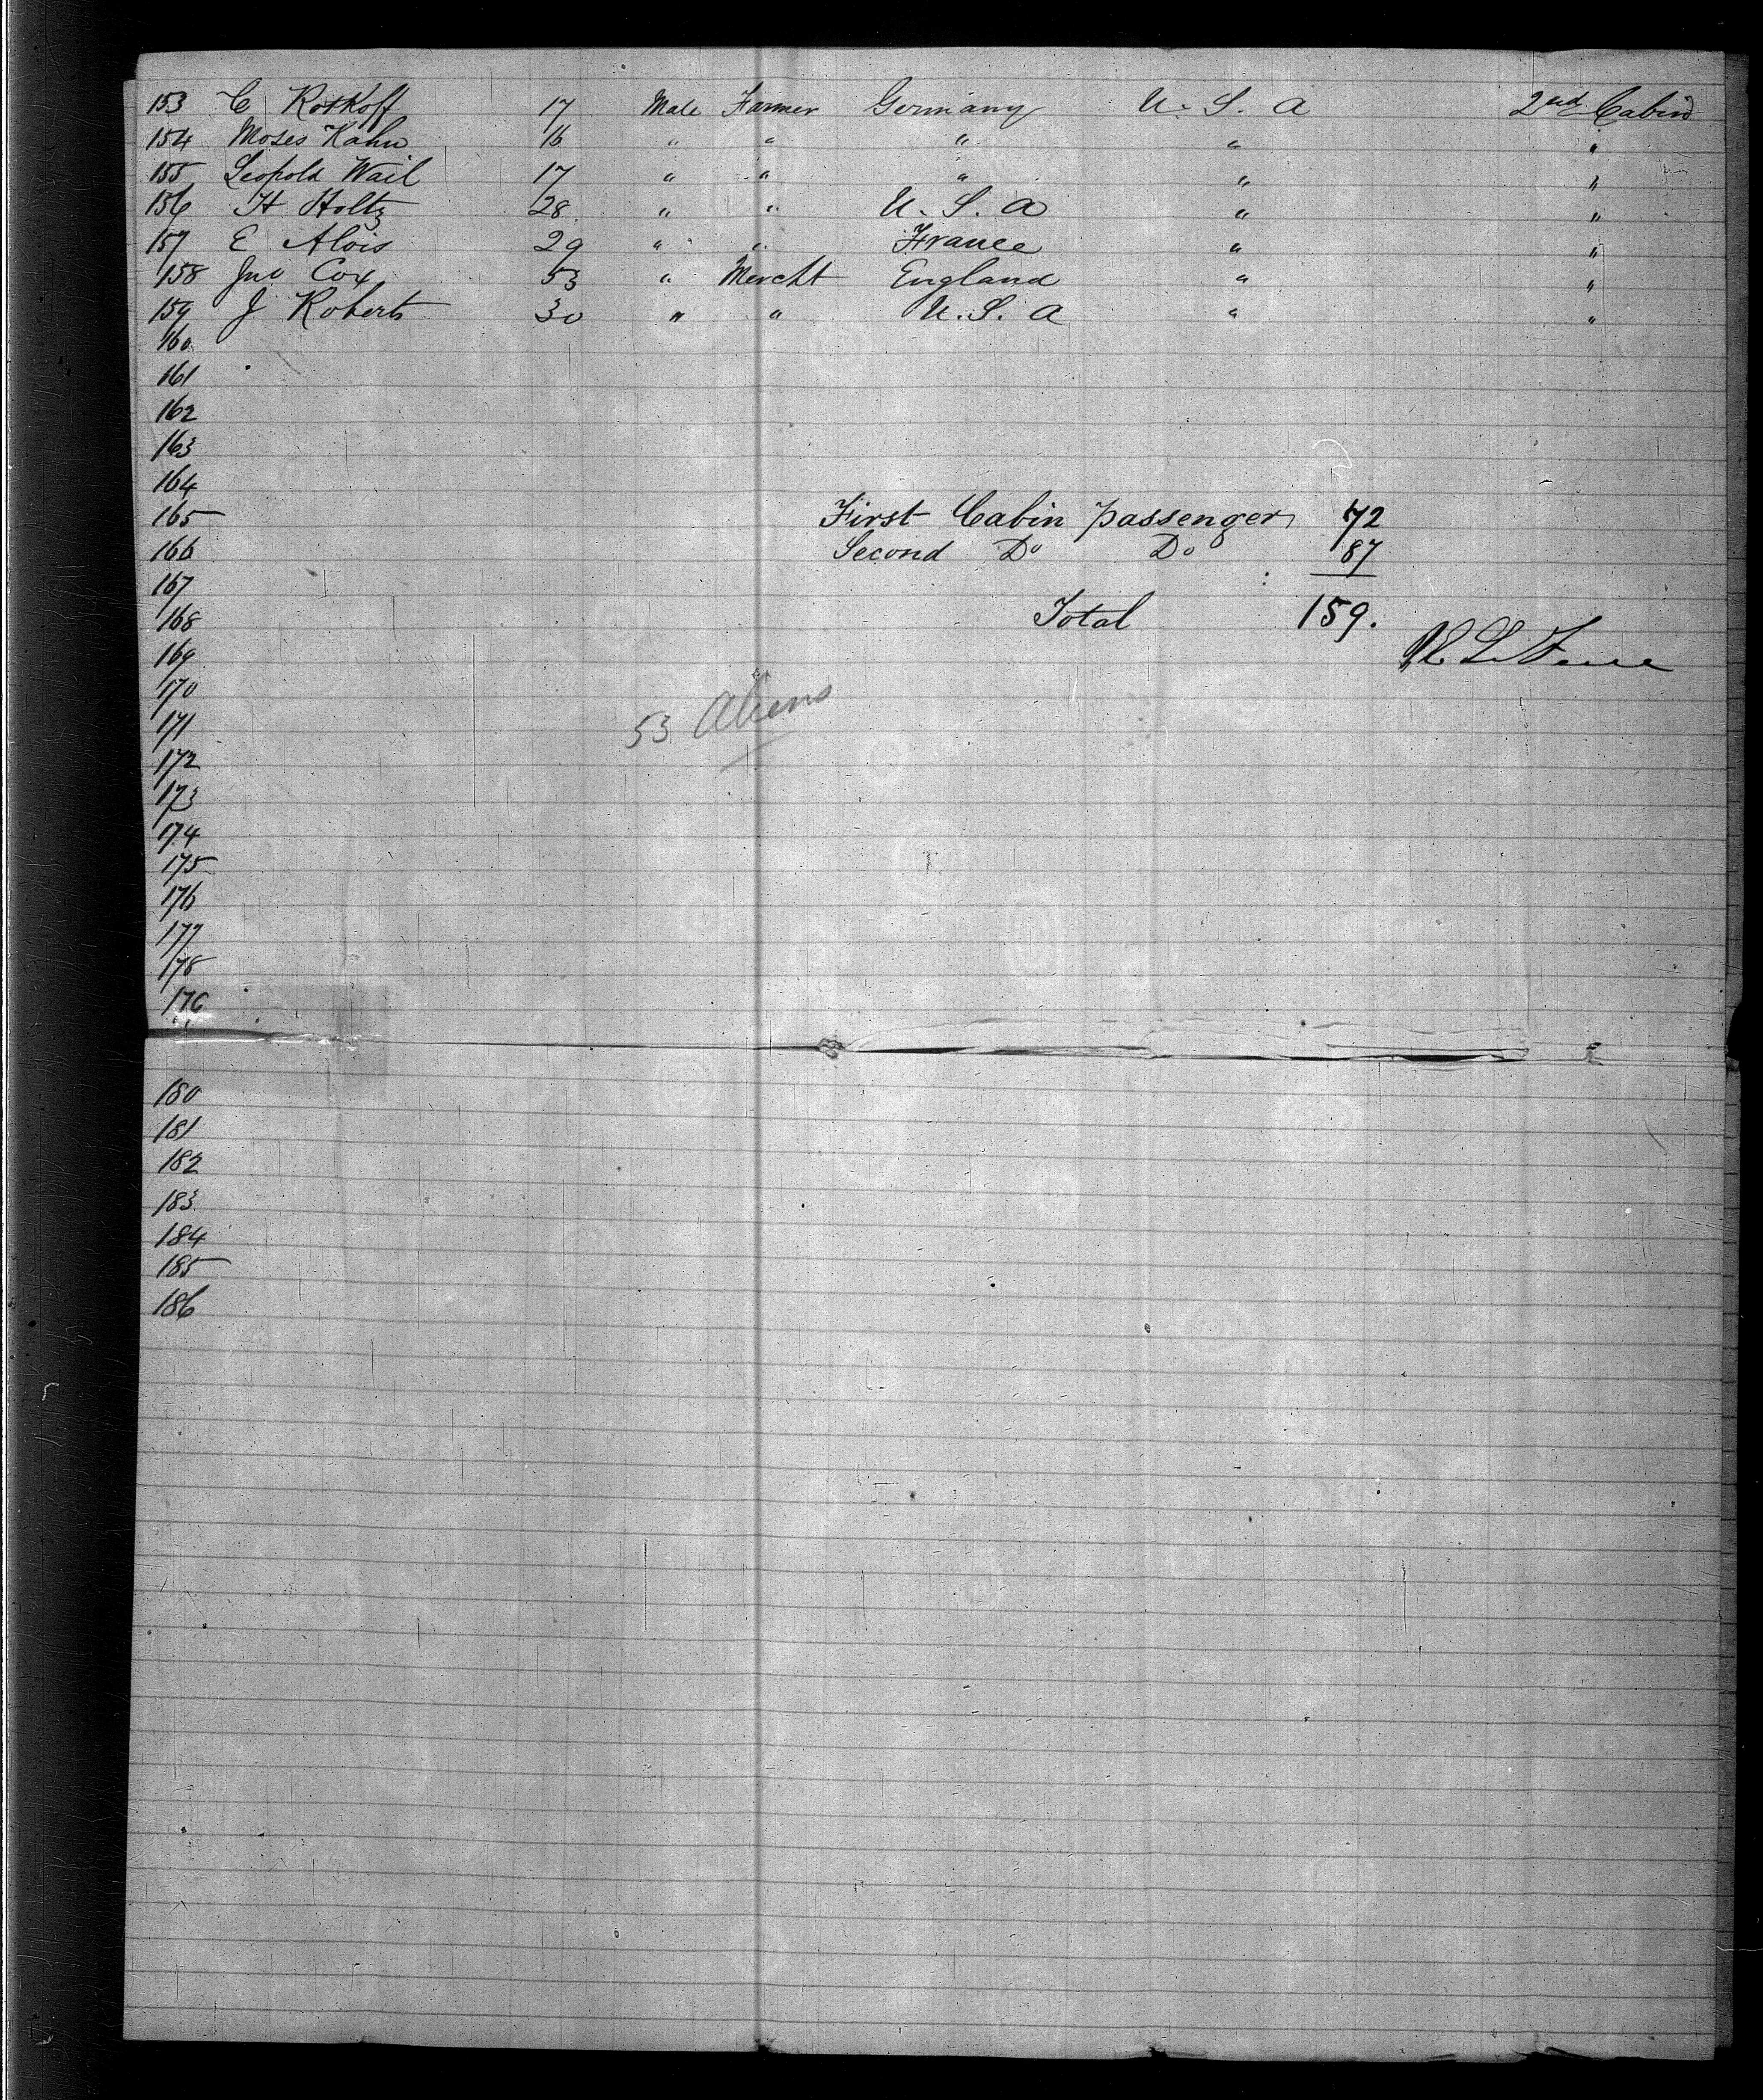 153 C Rotkoff 17 Male Farmer Germany U. S. A 2nd Cabin
154 Moses Kahn 16 " " " " "
155 Leopold Wail 17 " " " " "
156 H Holtz 28 " " U. S. A " "
157 E Alois 29 " " France " "
158 Jno Cox 53 " Mercht England " "
159 J Roberts 30 " " U. S. A " "
160
161
162
163
164
165 First Cabin passenger 72
166 Second Do Do 87
167
168 Total 159.
169
170
171 53 Aliens
172
173
174
175
176
177
178
179
180
181
182
183
184
185
186